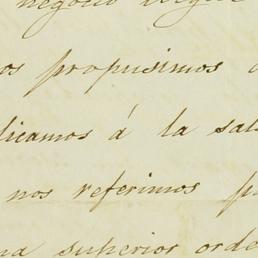 negocio
os propusimos
licamos á la sal
nos referimos p
na superior orde